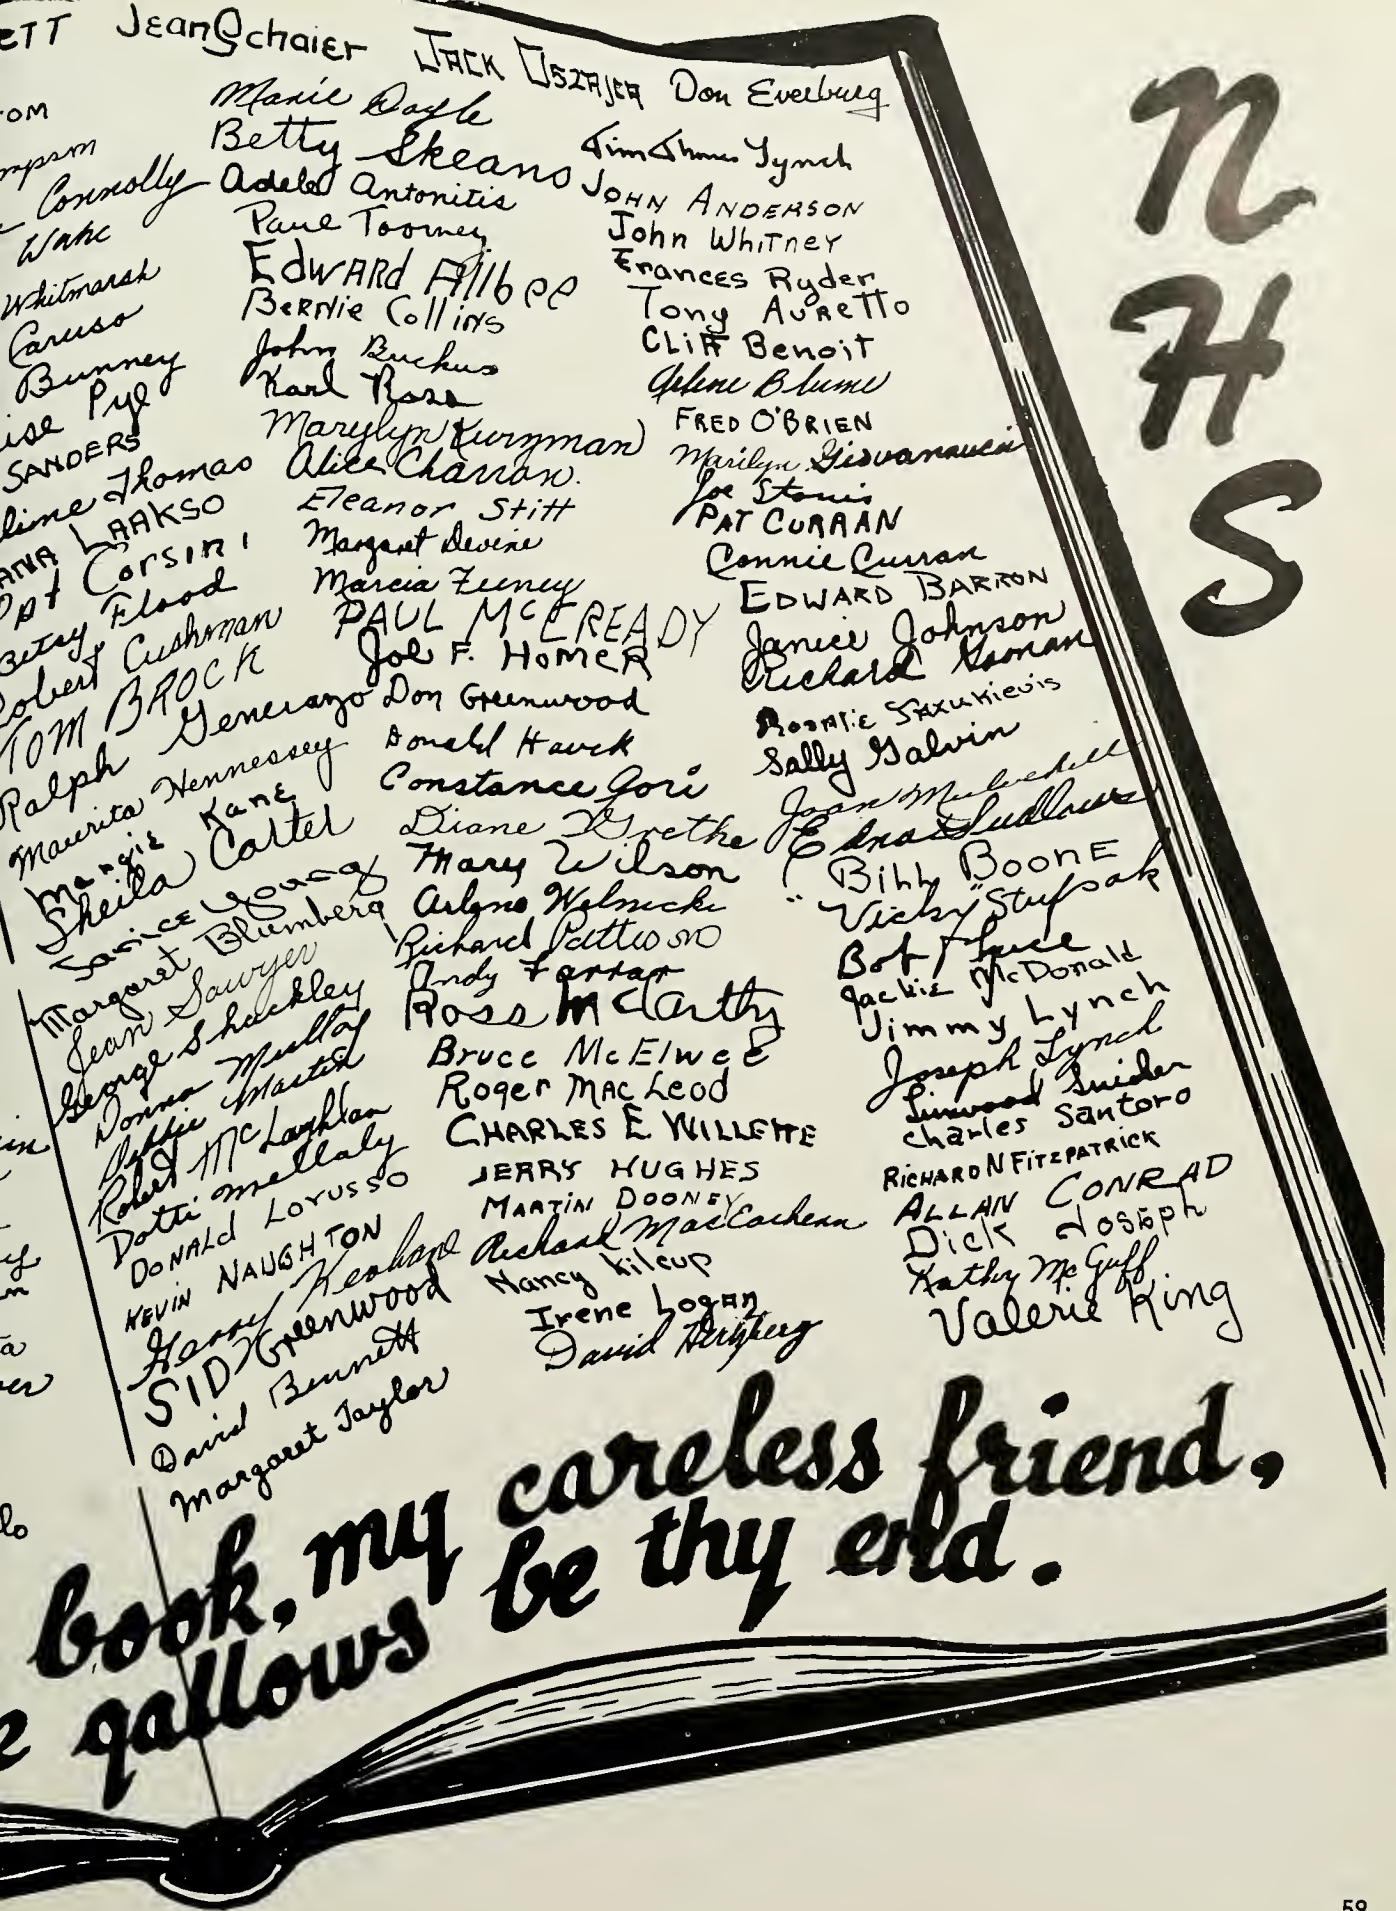 ETT Jean Schaier Jack Uszajca Don Everburg
OM
mpson
Connolly
Wake
Whitmarsh
Caruso
Bunney
ise Pyl
SANDERS
line Thomas
ANA LAAKSO
Pat Corsini
Betsy Flood
Robert Cushman
TOM BROCK
Ralph Generazo
Maurita Hennessey
Margie Kane
Sheila Carter
Janice Young
Margaret Blumberg
Jean Sawyer
George Shackley
Donna Mulloy
Debbie Martin
Robert McLaughlan
Dotti Mellaly
DONALD LORUSSO
KEVIN NAUGHTON
Henry Keohane
SID Greenwood
David Bennett
Margaret Taylor
Marie Doyle
Betty Skeans
Adele Antonitis
Paul Toomey
EDWARD Allbee
Bernie Collins
John Backus
Karl Rosa
Marylyn Kurzman
Alice Charron.
Eleanor Stitt
Margaret Devine
Marcia Feeney
PAUL McCREADY
Joe F. HOMER
Don Greenwood
Donald Hauck
Constance Gori
Diane Grethe
Mary Wilson
Arlene Welnicki
Richard Pattison
Andy Farrar
Ross McCarthy
Bruce McElwee
Roger MacLeod
CHARLES E. WILLETTE
JERRY HUGHES
MARTIN DOONEY
Richard MacEachern
Nancy Kilcup
Irene Logan
David Herzberg
Lynch
JOHN ANDERSON
John WHITNEY
Frances Ryder
Tony AURETTO
CLIFF Benoit
Arlene Blume
FRED O'BRIEN
Marilyn Giovanucci
Joe
PAT CURRAN
Connie Curran
EDWARD BARRON
Janice Johnson
Richard Noonan
Rosalie
Sally Galvin
Joan
Edna Ludlow
BILL BOONE
"Vicky" Stupak
Bob
Jackie McDonald
Jimmy Lynch
Joseph Lynch
Linwood Snider
Charles Santoro
RICHARD N FITZPATRICK
ALLAN CONRAD
Dick Joseph
Kathy McGuff
Valerie King
in
n
a
er
lo
N
H
S
book, my careless friend,
gallows be thy end.
59